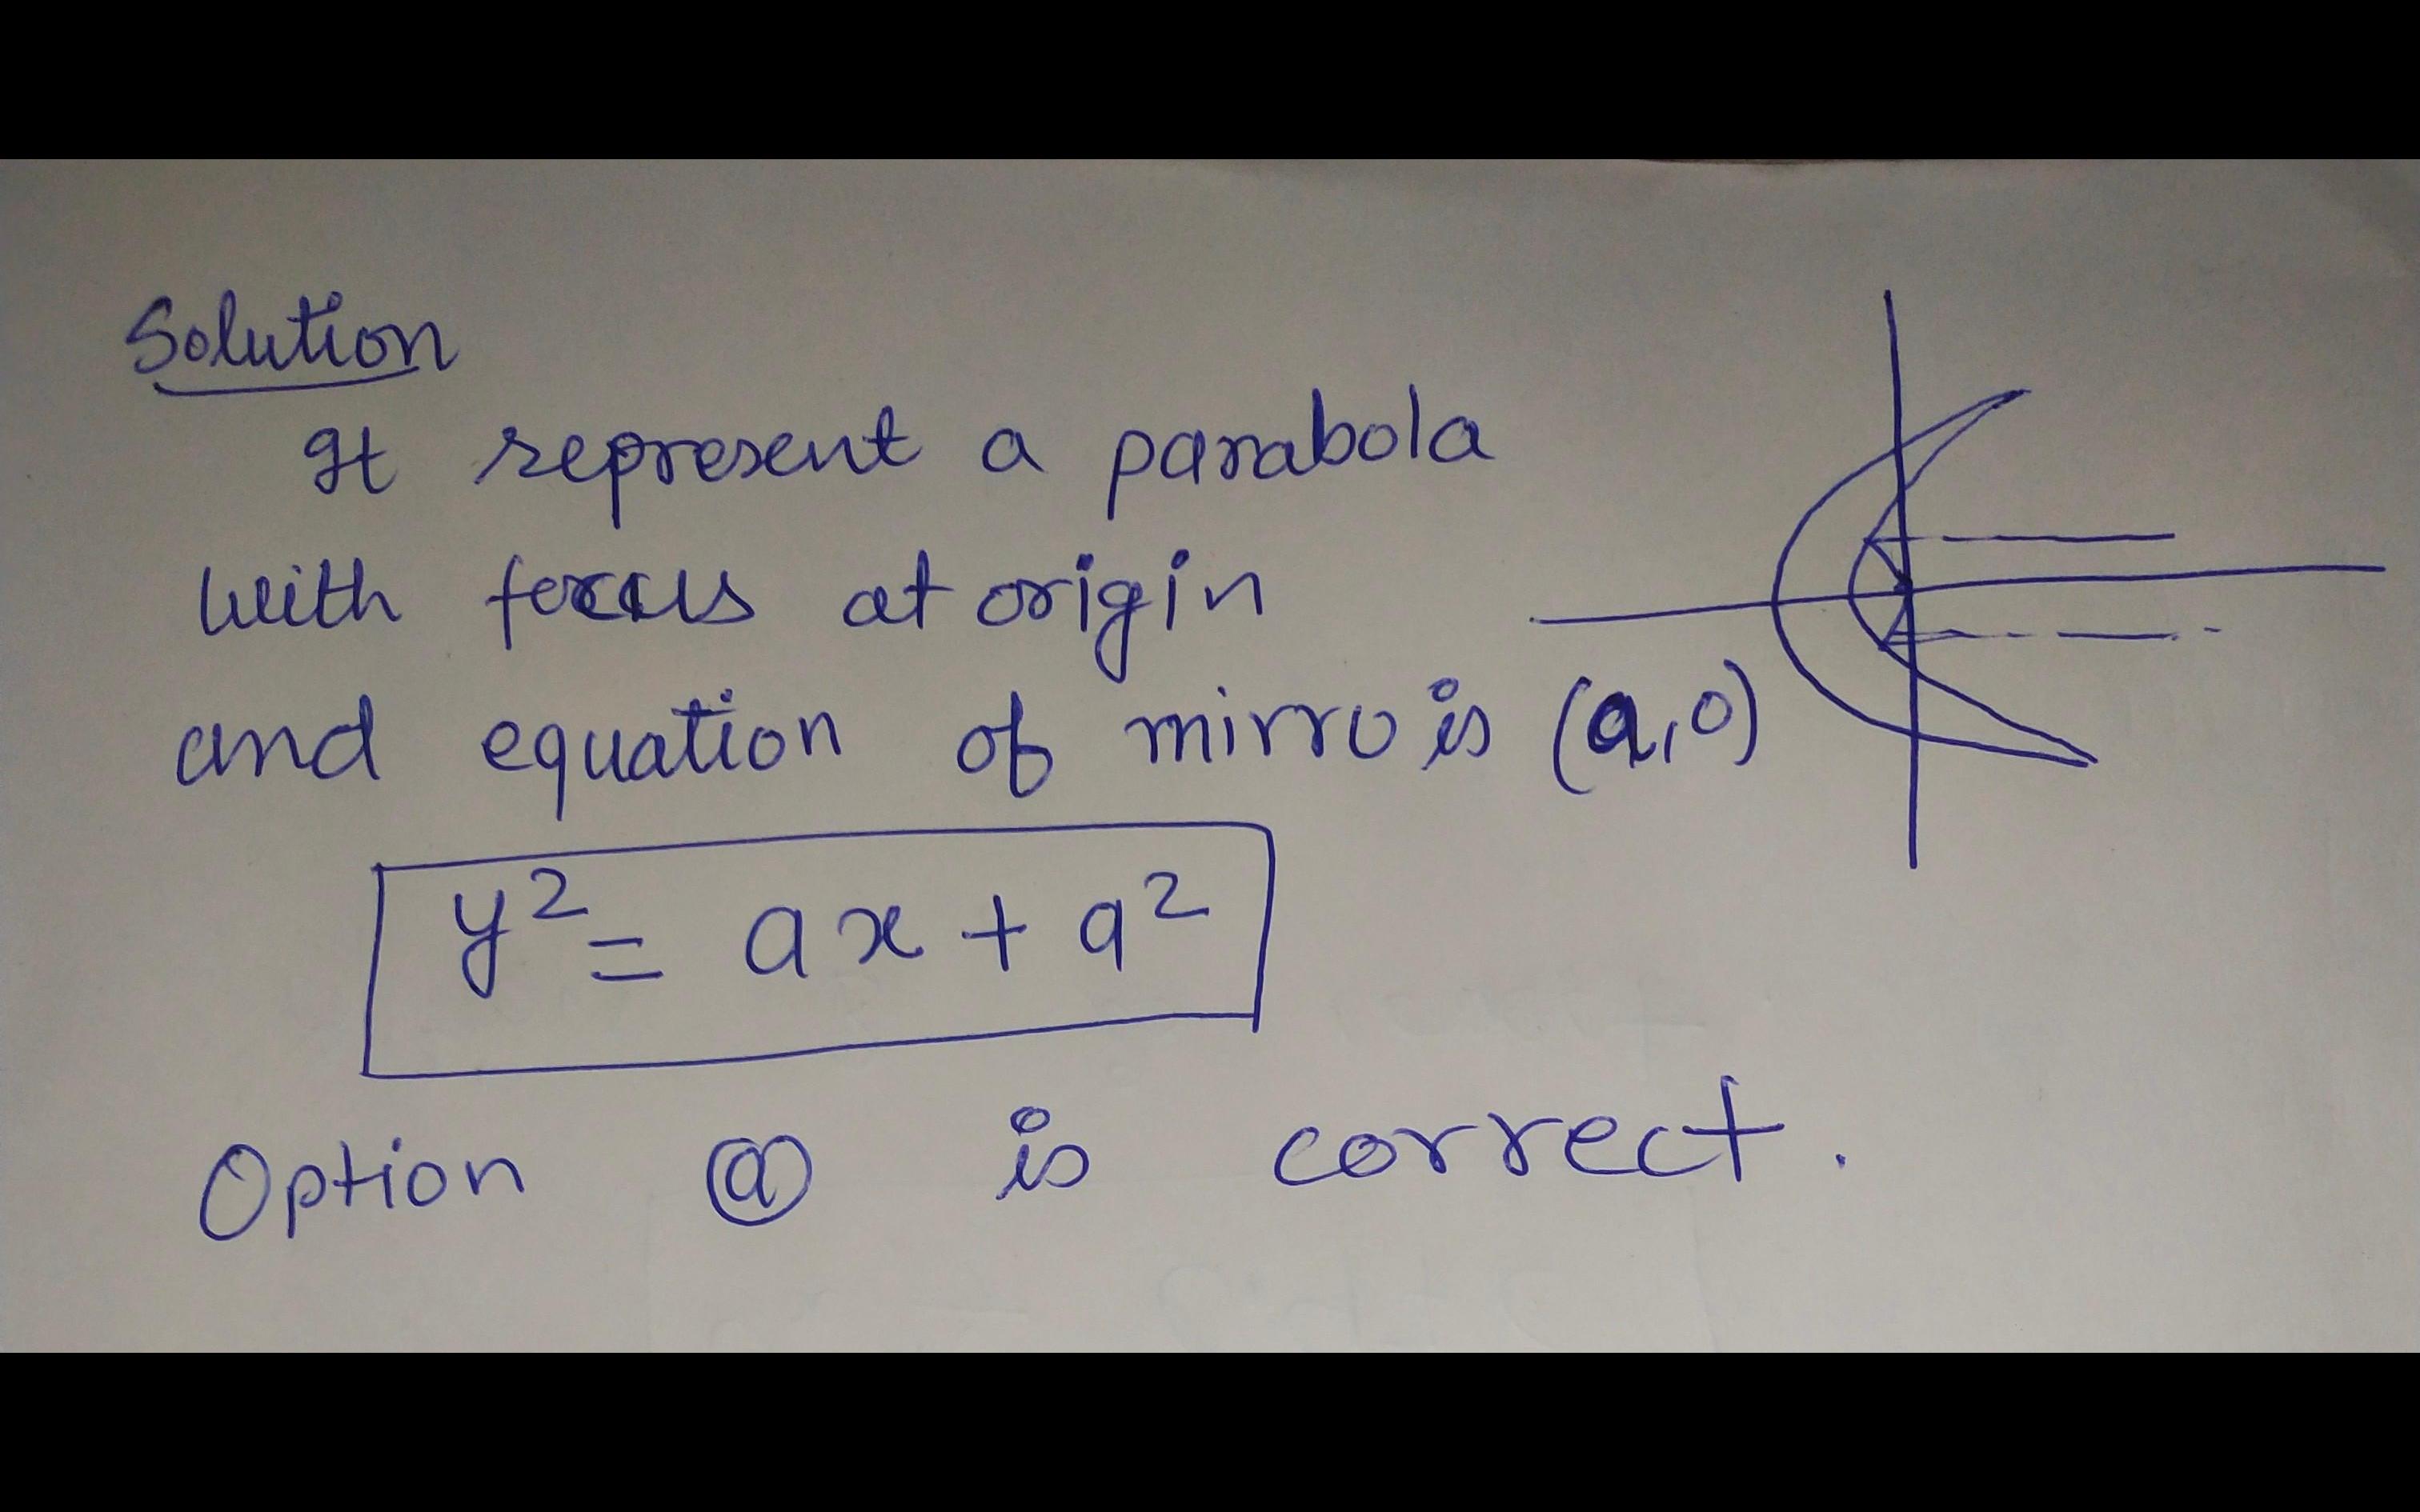 Solution
It represent a parabola
with focus at origin
and equation of mirro is (a,0)
y² = ax + a²
Option ⓐ is correct.